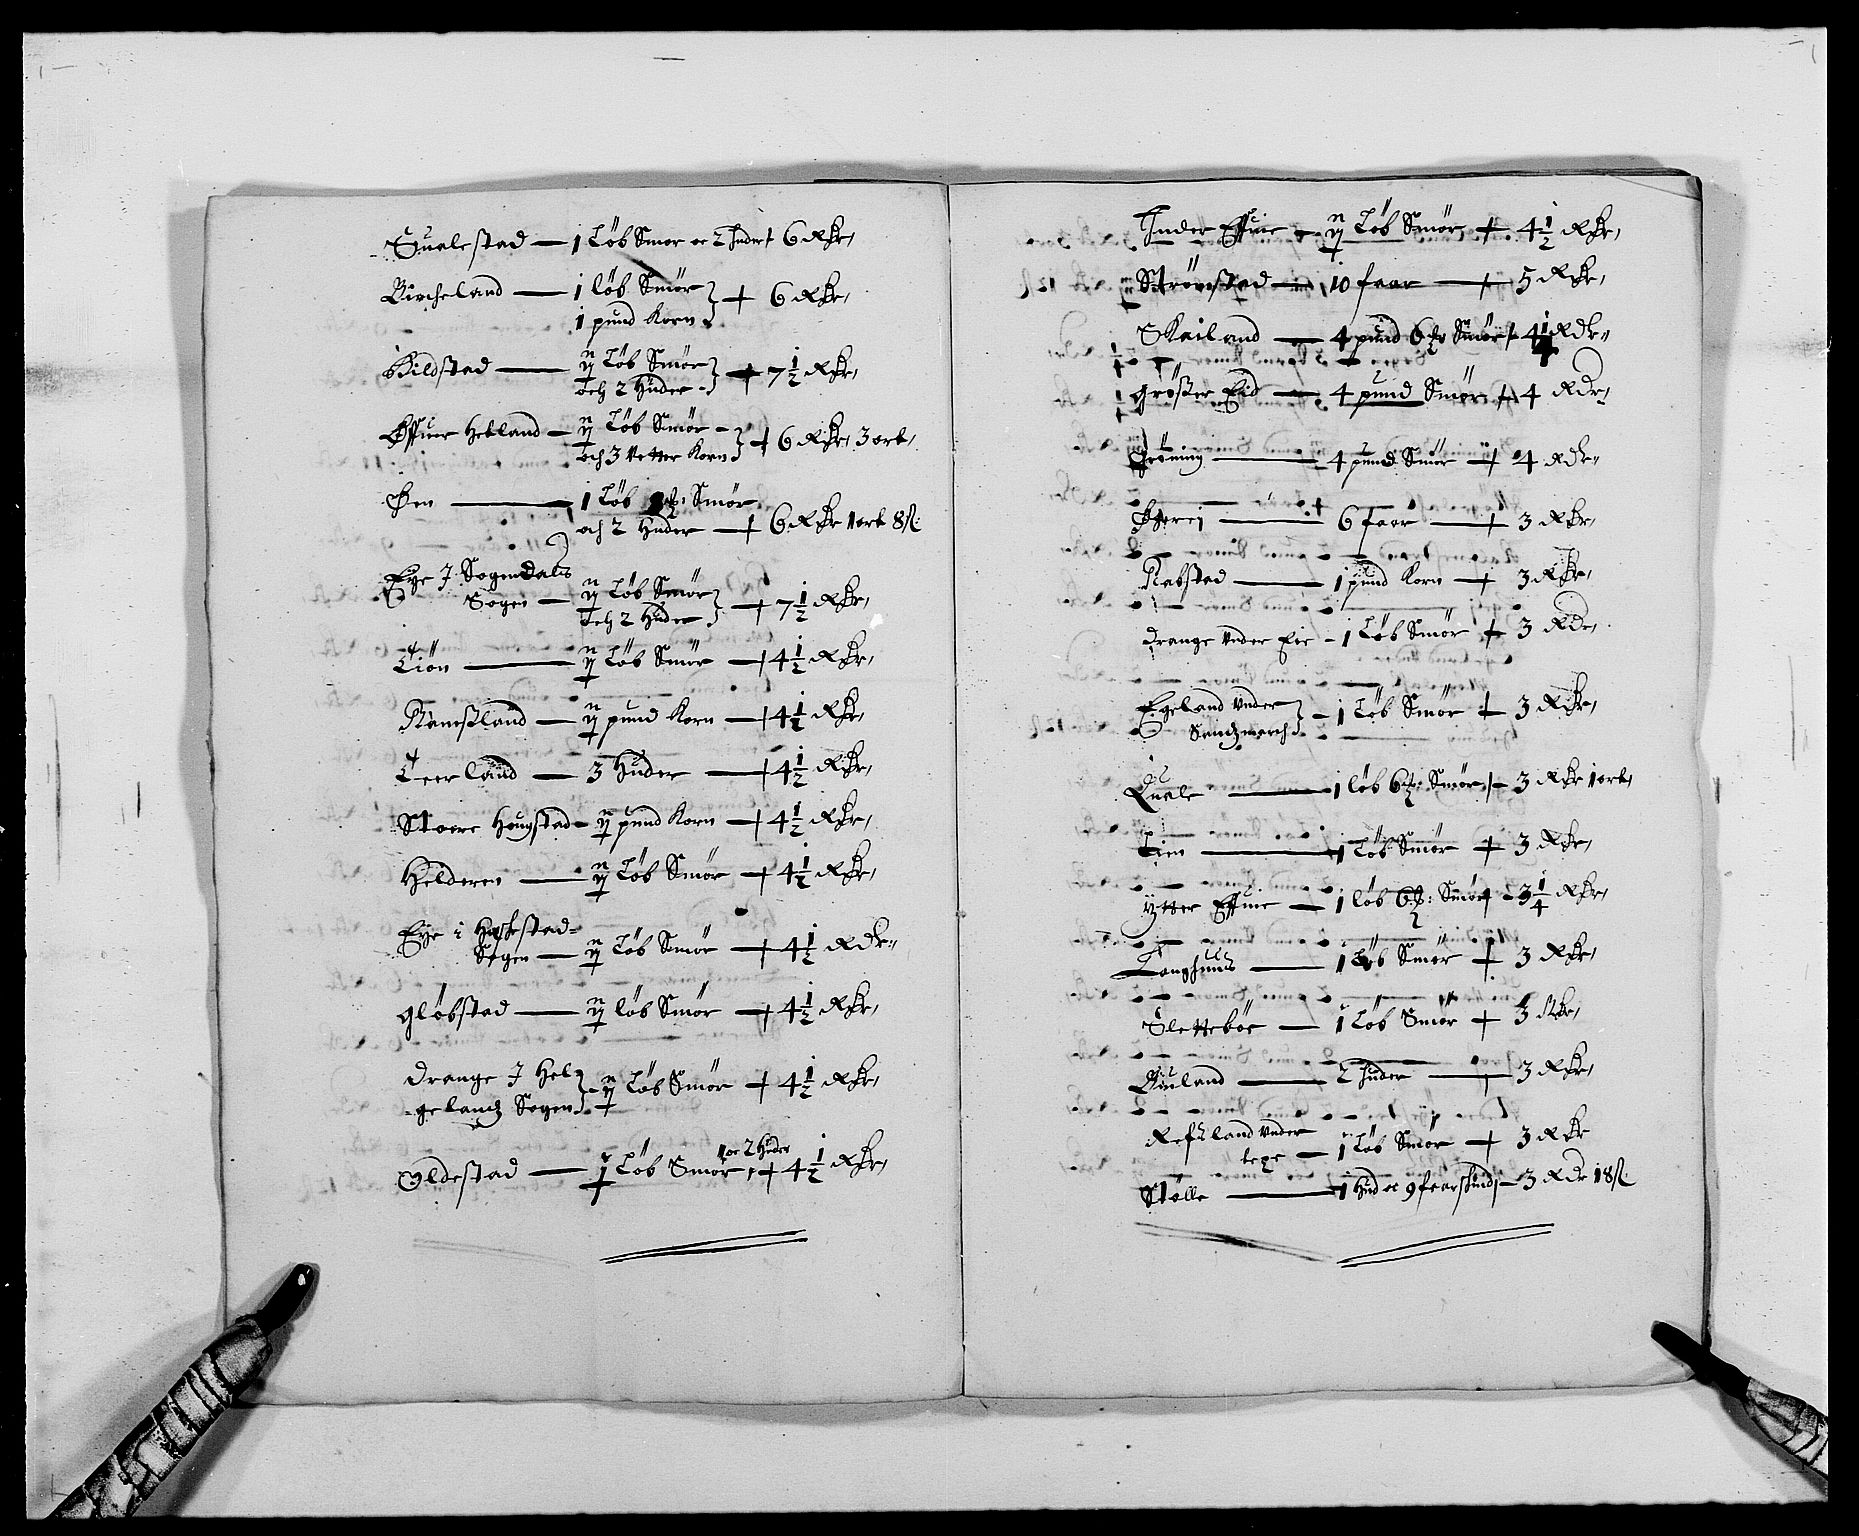 Sualestad — 1 Løb Smør oc 2 huder 6 Rdr,
Bircheland — 1 løb Smør
1 pund Korn 6 Rdr,
Kildstad — ij Løb Smør
och 2 Huder 7 1/2 Rdr,
Øffuer Hebland — ij Løb Smør
och 3 Vetter Korn 6 Rdr, 3 ort,
Øen — 1 Løb Smør
och 2 Huder — 6 Rdr 1 ort 8 ß:
Eye J Sogendals
Sogen — ij Løb Smør
och 2 Huder 7 1/2 Rdr,
Liøn — ij Løb Smør — 4 1/2 Rdr,
Ramsland — ij pund Korn — 4 1/2 Rdr,
Leerland — 3 Huder — 4 1/2 Rdr,
Stoere Hougstad — ij pund Korn — 4 1/2 Rdr,
Helderen — ij Løb Smør — 4 1/2 Rdr,
Eye i Heskestad-
Sogen — ij Løb Smør — 4 1/2 Rdr,
Gløbstad — ij løb Smør — 4 1/2 Rdr,
Drange J Hel-
gelandz Sogen ij Løb Smør 4 1/2 Rdr,
Oldestad — 1 Løb Smør, oc 2 Huder 4 1/2 Rdr,
Inder Effuie — ij Løb Smør 4 1/2 Rdr,
Strømstad — 10 faar — 5 Rdr,
Skailand — 4 pund 6 Smør 4 1/4 Rdr,
Grøßer Eid — 4 pund Smør 4 Rdr,
Grøning — 4 pund Smør 4 Rdr,
— 6 faar — 3 Rdr,
Rabstad — 1 pund Korn 3 Rdr,
Drange Vnder Eie — 1 Løb Smør 3 Rdr,
Egeland Vnder
1 Løb Smør 3 Rdr,
Quale — 1 løb 6 Smør 3 Rdr 1 ort,
Lien — 1 Løb Smør 3 Rdr,
Ytter Effuie — 1 løb 6 Smør 3 1/4 Rdr,
Langhuus — 1 Løb Smør 3 Rdr,
Slettebøe — 1 Løb Smør 3 Rdr,
Biuland — 2 huder — 3 Rdr,
Refsland Vnder
— 1 Løb Smør 3 Rdr
Stølle — 1 Hud oc 9 faarskind — 3 Rdr 18 ß: